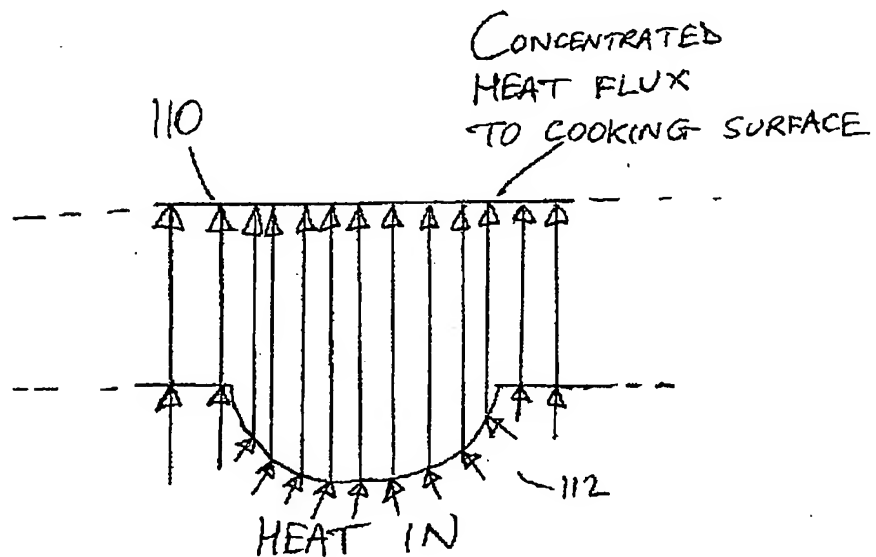 CONCENTRATED
HEAT FLUX
TO COOKING SURFACE
110
112
HEAT IN